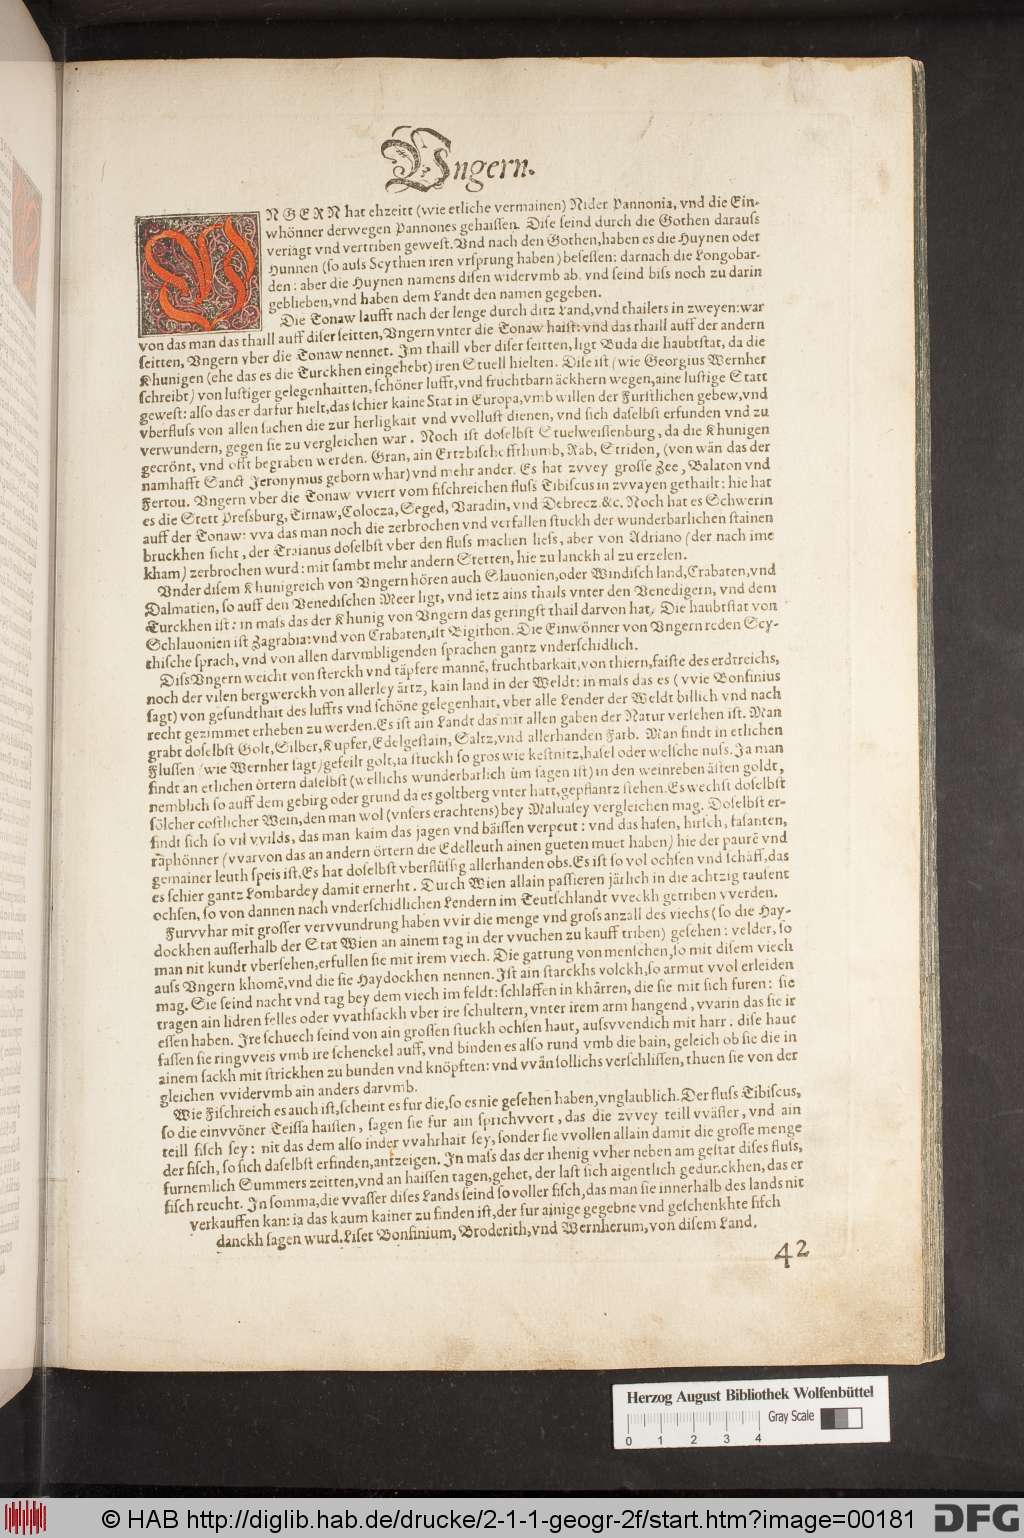 Vngern.
VNGERN hat ehzeitt (wie etliche vermainen) Nider Pannonia, vnd die Ein-
whönner dervvegen Pannones gehaissen. Dise seind durch die Gothen darauss
veriagt vnd vertriben gewest. Vnd nach den Gothen, haben es die Huynen oder
Hunnen (so auss Scythien iren vrsprung haben) besessen: darnach die Longobar-
den: aber die Huynen namens disen widervmb ab. vnd seind biss noch zu darin
geblieben, vnd haben dem Landt den namen gegeben.
Die Tonaw laufft nach der lenge durch ditz Land, vnd thailets in zweyen: war
von das man das thaill auff diser seitten, Vngern vnter die Tonaw haist: vnd das thaill auff der andern
seitten, Vngern vber die Tonaw nennet. Im thaill vber diser seitten, ligt Buda die haubtstat, da die
Khunigen (ehe das es die Turckhen eingehebt) iren Stuell hielten. Dise ist (wie Georgius Wernher
schreibt) von lustiger gelegenhaitten, schöner lufft, vnd fruchtbarn äckhern wegen, aine lustige Statt
gewest: also das er darfur hielt, das schier kaine Stat in Europa, vmb willen der Furstlichen gebew, vnd
vberfluss von allen sachen die zur herligkait vnd vvollust dienen, vnd sich daselbst erfunden vnd zu
verwundern, gegen sie zu vergleichen war. Noch ist doselbst Stuelweissenburg, da die Khunigen
gecrönt, vnd offt begraben werden. Gran, ain Ertzbischoffthumb, Rab, Stridon, (von wän das der
namhafft Sanct Jeronymus geborn whar) vnd mehr ander. Es hat zvvey grosse Zee, Balaton vnd
Fertou. Vngern vber die Tonaw vviert vom fischreichen fluss Tibiscus in zvvayen gethailt: hie hat
es die Stett Pressburg, Tirnaw, Colocza, Seged, Varadin, vnd Debrecz. &c. Noch hat es Schwerin
auff der Tonaw: vva das man noch die zerbrochen vnd verfallen stuckh der wunderbarlichen stainen
bruckhen sicht, der Traianus doselbst vber den fluss machen liess, aber von Adriano (der nach ime
kham) zerbrochen wurd: mit sambt mehr andern Stetten, hie zu lanckh al zu erzelen.
Vnder disem Khunigreich von Vngern hören auch Slauonien, oder Windisch land, Crabaten, vnd
Dalmatien, so auff den Venedischen Meer ligt, vnd ietz ains thails vnter den Venedigern, vnd dem
Turckhen ist: in mass das der Khunig von Vngern das geringst thail darvon hat. Die haubtstat von
Schlauonien ist Zagrabia: vnd von Crabaten, ist Bigithon. Die Einwönner von Vngern reden Scy-
thische sprach, vnd von allen darvmbligenden sprachen gantz vnderschidlich.
Diss Vngern weicht von sterckh vnd täpfere mannē, fruchtbarkait, von thiern, faiste des erdtreichs,
noch der vilen bergwerckh von allerley ärtz, kain land in der Weldt: in mass das es (vvie Bonfinius
sagt) von gesundthait des luffts vnd schöne gelegenhait, vber alle Lender der Weldt billich vnd nach
recht gezimmet erheben zu werden. Es ist ain Landt das mit allen gaben der Natur versehen ist. Man
grabt doselbst Golt, Silber, Kupfer, Edelgestain, Saltz, vnd allerhanden Farb. Man findt in etlichen
Flussen (wie Wernher sagt) gefeilt golt, ia stuckh so gros wie kestnitz, hasel oder welsche nuss. Ja man
findt an etlichen örtern daselbst (wellichs wunderbarlich üm sagen ist) in den weinreben ästen goldt,
nemblich so auff dem gebirg oder grund da es goltberg vnter hatt, gepflantz stehen. Es wechst doselbst
sölcher costlicher Wein, den man wol (vnsers erachtens) bey Maluasey vergleichen mag. Doselbst er-
findt sich so vil vvilds, das man kaim das jagen vnd bäissen verpeut: vnd das hasen, hirsch, fasanten,
räphönner (vvarvon das an andern örtern die Edelleuth ainen gueten muet haben) hie der paurē vnd
gemainer leuth speis ist. Es hat doselbst vberflüssig allerhanden obs. Es ist so vol ochsen vnd schäff, das
es schier gantz Lombardey damit ernerht. Durch Wien allain passieren järlich in die achtzig tausent
ochsen, so von dannen nach vnderschidlichen Lendern im Teutschlandt vveckh getriben vverden.
Furvvhar mit grosser vervvundrung haben vvir die menge vnd gross anzall des viechs (so die Hay-
dockhen ausserhalb der Stat Wien an ainem tag in der vvuchen zu kauff triben) gesehen: velder, so
man nit kundt vbersehen, erfullen sie mit irem viech. Die gattung von menschen, so mit disem viech
auss Vngern khomē, vnd die sie Haydockhen nennen. Ist ain starckhs volckh, so armut vvol erleiden
mag. Sie seind nacht vnd tag bey dem viech im feldt: schlaffen in khärren, die sie mit sich furen: sie
tragen ain lidren felles oder vvathsackh vber ire schultern, vnter irem arm hangend, vvarin das sie ir
essen haben. Ire schuech seind von ain grossen stuckh ochsen haut, aussvvendich mit harr. dise haut
fassen sie ringvveis vmb ire schenckel auff, vnd binden es also rund vmb die bain, geleich ob sie die in
ainem sackh mit strickhen zu bunden vnd knöpften: vnd vvän sollichs verschlissen, thuen sie von der
gleichen vvidervmb ain anders darvmb.
Wie Fischreich es auch ist, scheint es fur die, so es nie gesehen haben, vnglaublich. Der fluss Tibiscus,
so die einvvöner Teissa haissen, sagen sie fur ain sprichvvort, das die zvvey teill vväster, vnd ain
teill fisch sey: nit das dem also in der vvahrhait sey, sonder sie vvollen allain damit die grosse menge
der fisch, so sich daselbst erfinden, antzeigen. In mass das der ihenig vvher neben am gestat dises fluss,
furnemlich Summers zeitten, vnd an haissen tagen, gehet, der last sich aigentlich geduncken, das er
fisch reucht. In somma, die vvasser dises Lands seind so voller fisch, das man sie innerhalb des lands nit
verkauffen kan: ia das kaum kainer zu finden ist, der fur ainige gegebne vnd geschenkhte fisch
danckh sagen wurd. Liset Bonfinium, Broderith, vnd Wernherum, von disem Land.
42
Herzog August Bibliothek Wolfenbüttel
Gray Scale
0 1 2 3 4
© HAB http://diglib.hab.de/drucke/2-1-1-geogr-2f/start.htm?image=00181
DFG